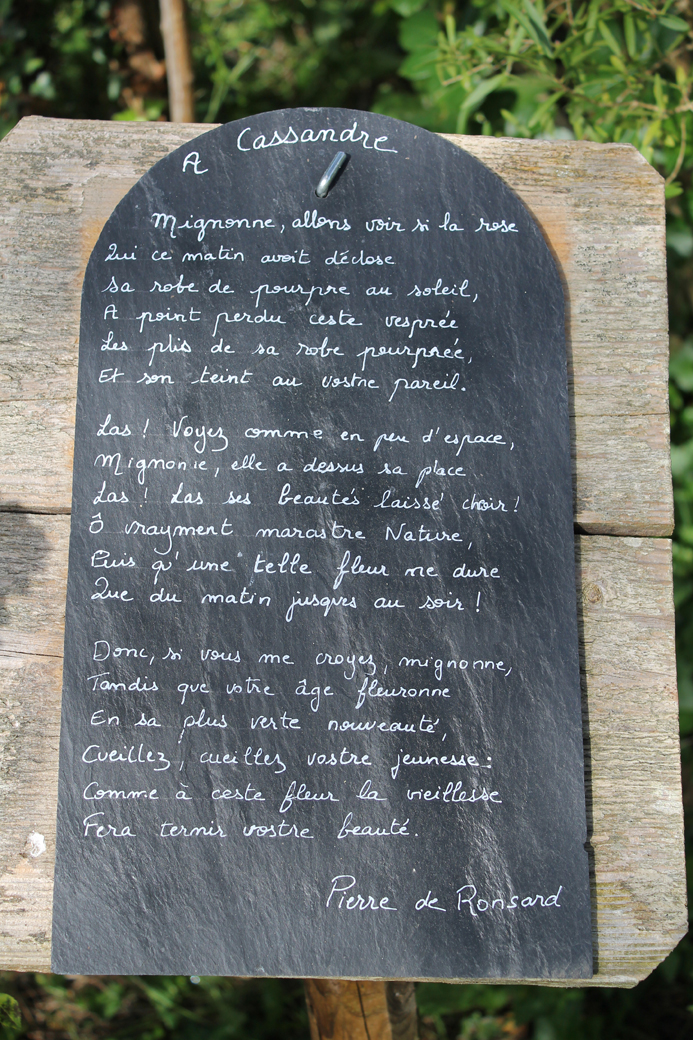 A Cassandre
Mignonne, allons voir si la rose
Qui ce matin avoit déclose
Sa robe de pourpre au soleil,
A point perdu ceste vesprée
Les plis de sa robe pourprée,
Et son teint au vostre pareil.
Las ! Voyez comme en peu d'espace,
Mignonne, elle a dessus sa place
Las ! Las ses beautés laissé choir !
Ô vrayment marastre Nature,
Puis qu'une telle fleur ne dure
Que du matin jusques au soir !
Donc, si vous me croyez, mignonne,
Tandis que votre âge fleuronne
En sa plus verte nouveauté,
Cueillez, cueillez vostre jeunesse :
Comme à ceste fleur la vieillesse
Fera ternir vostre beauté.
Pierre de Ronsard